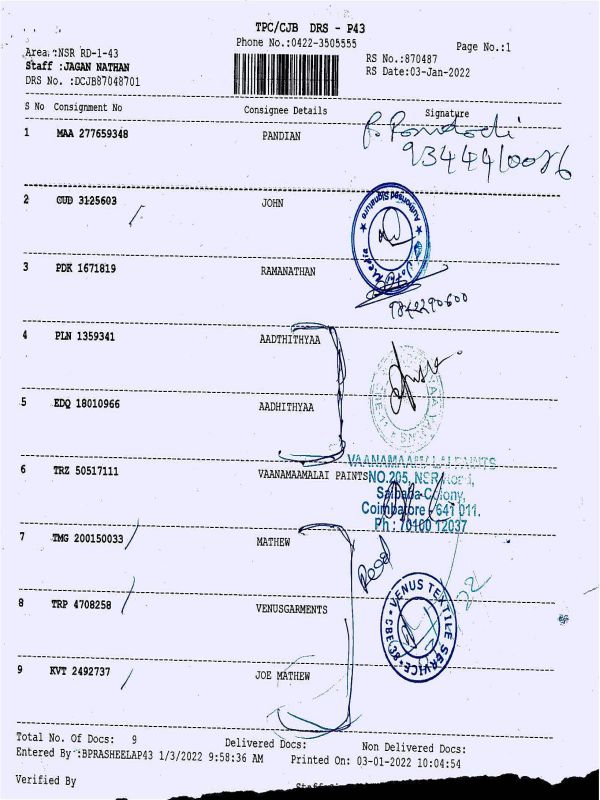 TPC/CJB DRS - P43
Phone No.:0422-3505555
Page No.:1
Area :NSR RD-1-43
Staff :JAGAN NATHAN
DRS No. :DCJB87048701
RS No.:870487
RS Date:03-Jan-2022
S No Consignment No Consignee Details Signature
1 MAA 277659348 PANDIAN
2 CUD 3125603 JOHN
Authorised Signature
3 PDK 1671819 RAMANATHAN
9842290600
4 PLN 1359341 AADTHITHYAA
5 EDQ 18010966 AADHITHYAA
6 TRZ 50517111 VAANAMAAMALAI PAINTS
VAANAMAAMALAI PAINTS
NO.205, NSR Road,
Saibaba Colony,
Coimbatore - 641 011.
Ph : 70100 12037
7 TMG 200150033 MATHEW
8 TRP 4708258 VENUSGARMENTS
VENUS TEXTILE SERVICE
9 KVT 2492737 JOE MATHEW
Total No. Of Docs: 9 Delivered Docs: Non Delivered Docs:
Entered By :BPRASHEELAP43 1/3/2022 9:58:36 AM Printed On: 03-01-2022 10:04:54
Verified By